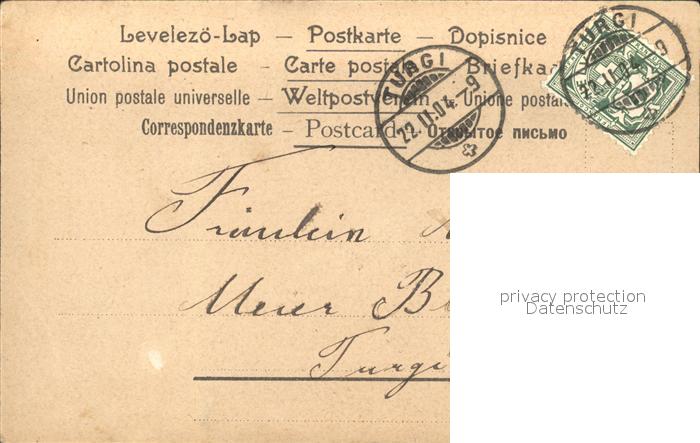 Levelezö-Lap — Postkarte — Dopisnice
Cartolina postale — Carte postale — Briefka
Union postale universelle — Weltpostverein — Unione postal
Correspondenzkarte — Postcard — Открытое письмо
TURGI
22.II.04.–9
TURGI
22.II.04.–9
Fräulein
Meier B
Turgi
privacy protection
Datenschutz